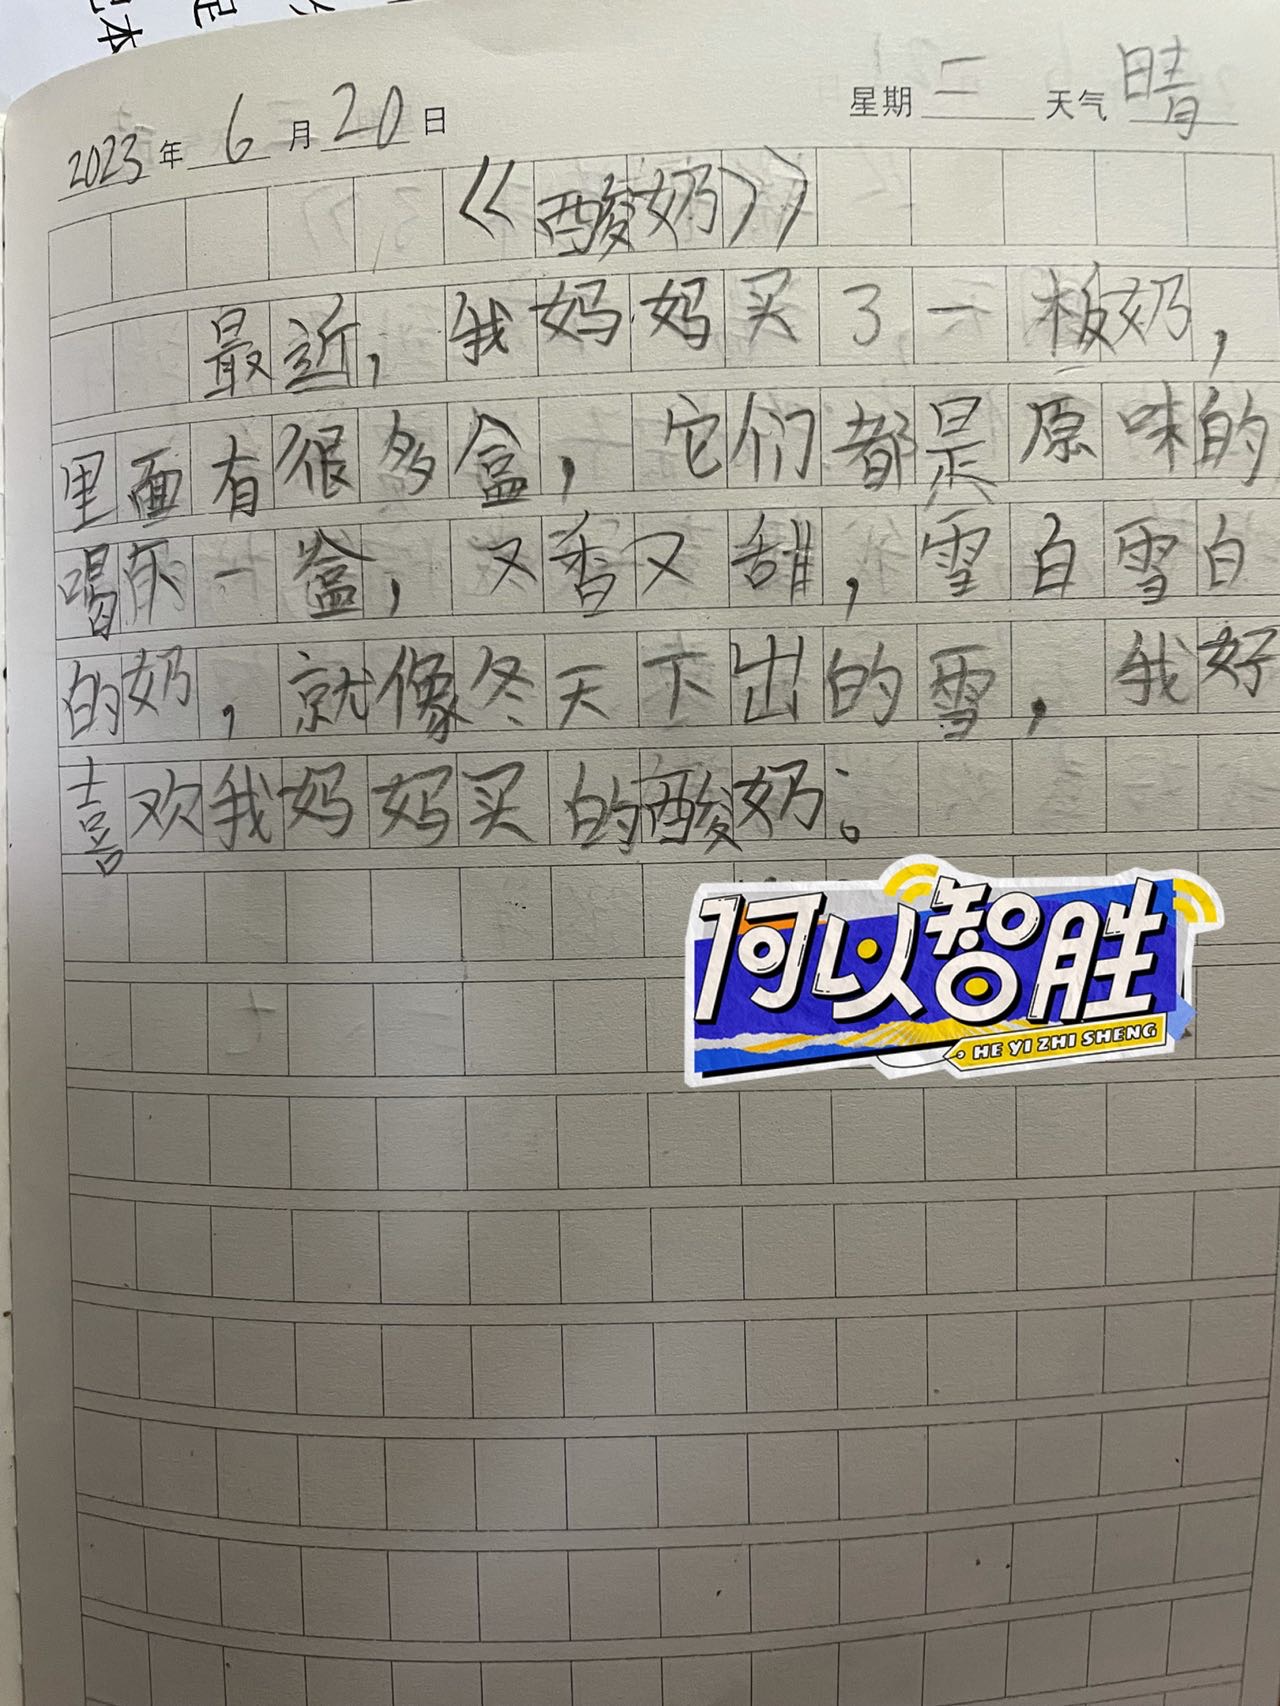 2023年6月20日 星期二 天气晴
《酸奶》
最近，我妈妈买了一板奶，
里面有很多盒，它们都是原味的
喝一盒，又香又甜，雪白雪白
的奶，就像冬天下出的雪，我好
喜欢我妈妈买的酸奶。
何以智胜
HE YI ZHI SHENG